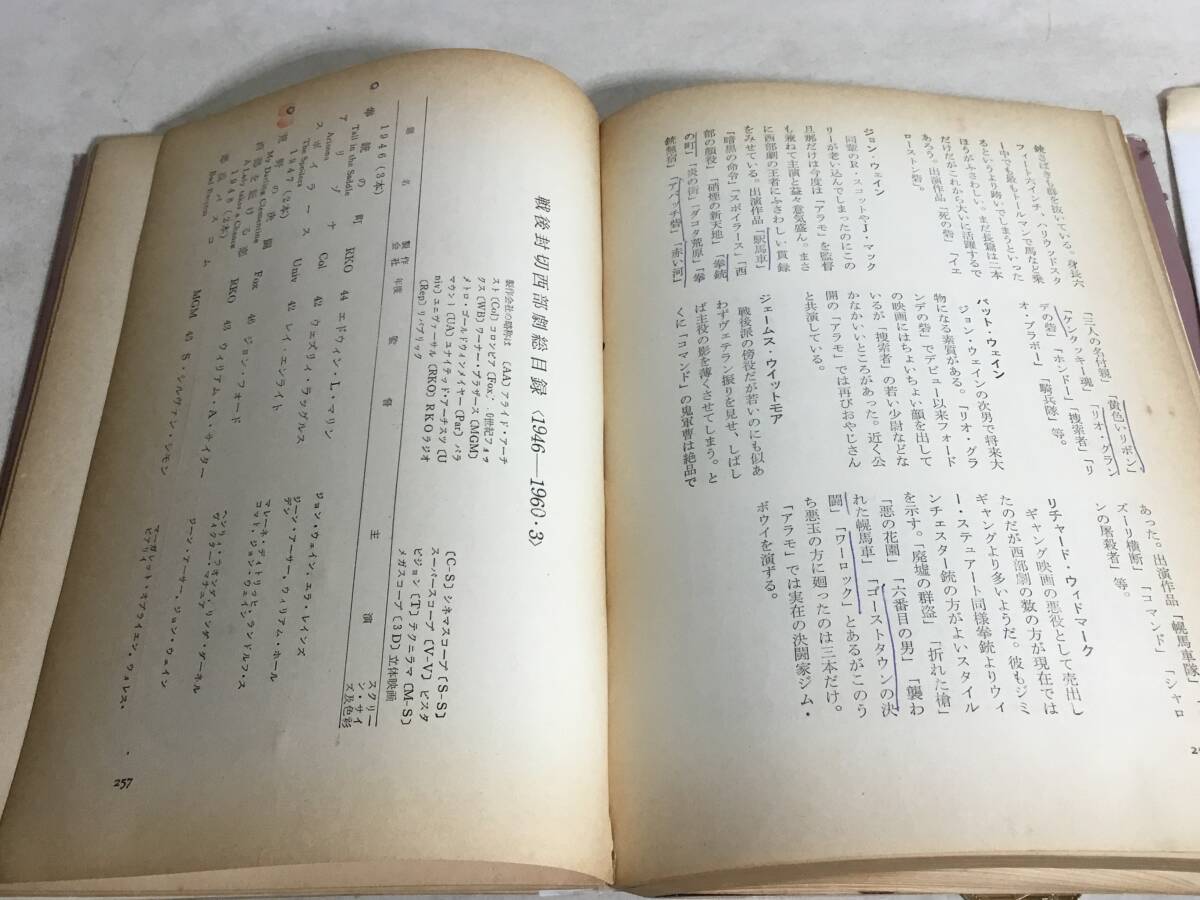 銃さばきも群を抜いている。身長六
フィート六インチ、ハリウッドスタ
ー中でも最もトールマンで馬など乗
るというより跨いでしまうといった
ほうがふさわしい。まだ長篇は二本
だけだがこれから大いに活躍するで
あろう。出演作品「死の砦」「イエ
ローストン砦」
ジョン・ウェイン
同輩のR・スコットやJ・マック
リーが老い込んでしまったのにこの
旦那だけは今度は「アラモ」を監督
も兼ねて主演と益々意気盛ん。まさ
に西部劇の王者にふさわしい貫録
をみせている。出演作品「駅馬車」
「暗黒の命令」「スポイラース」「西
部の顔役」「硝煙の新天地」「拳銃
の町」「炎の街」「ダコタ荒原」「拳
銃無宿」「アパッチ砦」「赤い河」
「三人の名付親」「黄色いリボン」
「ケンタッキー魂」「リオ・グラン
デの砦」「ホンドー」「捜索者」「リ
オ・ブラボー」「騎兵隊」等。
パット・ウェイン
ジョン・ウェインの次男で将来大
物になる素質がある。「リオ・グラ
ンデの砦」でデビュー以来フォード
の映画にはちょいちょい顔を出して
いるが「捜索者」の若い少尉などな
かなかいいところがあった。近く公
開の「アラモ」では再びおやじさん
と共演している。
ジェームス・ウイットモア
戦後派の傍役だが若いのにも似あ
わずヴェテラン振りを見せ、しばし
ば主役の影を薄くさせてしまう。と
くに「コマンド」の鬼軍曹は絶品で
あった。出演作品「幌馬車隊」「大
ズーリ横断」「コマンド」「シャロ
ンの屠殺者」等。
リチャード・ウィドマーク
ギャング映画の悪役として売出し
たのだが西部劇の数の方が現在では
ギャングより多いようだ。彼もジミ
ー・ステュアート同様拳銃よりウィ
ンチェスター銃の方がよいスタイル
を示す。「廃墟の群盗」「折れた槍」
「悪の花園」「六番目の男」「襲わ
れた幌馬車」「ゴーストタウンの決
闘」「ワーロック」とあるがこのう
ち悪玉の方に廻ったのは三本だけ。
「アラモ」では実在の決闘家ジム・
ボウイを演ずる。
戦後封切西部劇総目録〈1946—1960・3〉
製作会社の略称は (AA)アライド・アーチ
スト(Col)コロンビア(Fox)
クス(WB)ワーナー・ブラザース(MGM)
メトロ・ゴールドウィンメイヤー(Par)パラ
マウント(UA)ユナイテッド・アーチスツ(U
niv)ユニヴァーサル(RKO)RKOラジオ
(Rep)リパブリック
〔C-S〕シネマスコープ〔S-S〕
スーパースコープ〔V-V〕ビスタ
ビジョン〔T〕テクニラマ〔M-S〕
メガスコープ〔3D〕立体映画
題名 製作会社 年度 監督 主演 スクリーン・サイズ及色彩
1946(3本)
拳銃の町 RKO 44 エドウィン・L・マリン ジョン・ウェイン、エラ・レインズ
Tall in the Saddle
アリゾナ Col 42 ウェズリイ・ラッグルス ジーン・アーサー、ウィリアム・ホールデン
Arizona
スポイラース Univ 42 レイ・エンライト マレーネ・ディトリッヒ、ランドルフ・スコット、ジョン・ウェイン
The Spoilers
1947(2本)
荒野の決闘 Fox 46 ジョン・フォード ヘンリイ・フォンダ、リンダ・ダーネル、ヴィクター・マチュア
My Darling Clementine
西部を駈ける恋 RKO 43 ウィリアム・A・サイター ジーン・アーサー、ジョン・ウェイン
A Lady takes a Chance
1948(2本)
悪漢バスコム MGM 45 S・シルヴァン・シモン マーガレット・オブライエン、ウォレス・ビアリイ
Bad Bascom
257